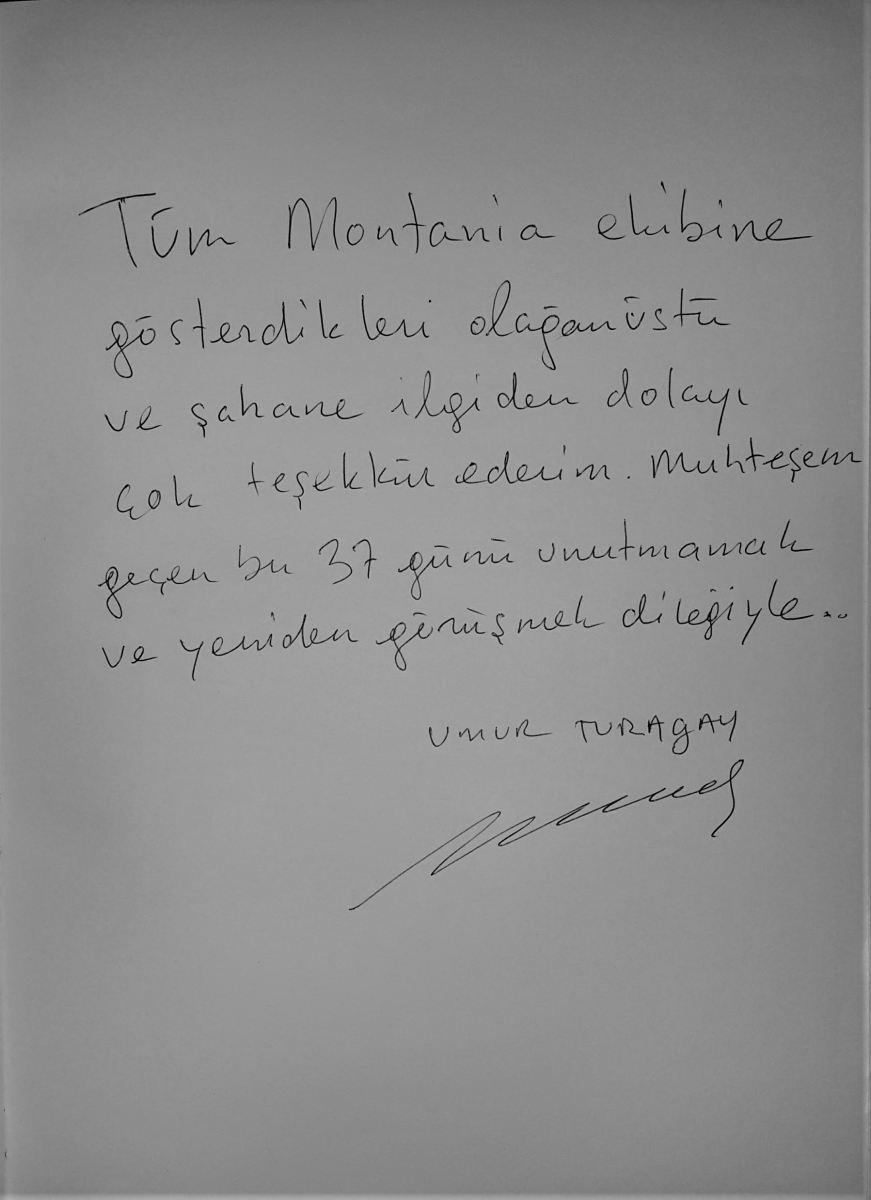 Tüm Montania ekibine
gösterdikleri olağanüstü
ve şahane ilgiden dolayı
çok teşekkür ederim. Muhteşem
geçen bu 37 günü unutmamak
ve yeniden görüşmek dileğiyle...
UMUR TURAGAY